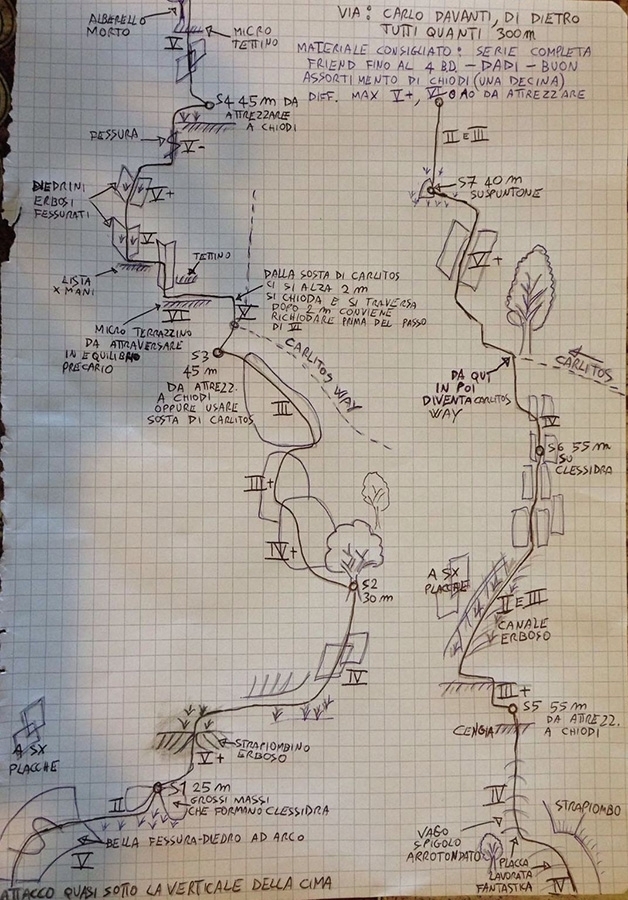 VIA: CARLO DAVANTI, DI DIETRO
TUTTI QUANTI 300m
MATERIALE CONSIGLIATO: SERIE COMPLETA
FRIEND FINO AL 4 BD - DADI - BUON
ASSORTIMENTO DI CHIODI (UNA DECINA)
DIFF. MAX V+, VI- O A0 DA ATTREZZARE
ALBERELLO
MORTO
V
MICRO
TETTINO
S4 45 m DA
ATTREZZARE
A CHIODI
FESSURA
V-
DIEDRINI
ERBOSI
FESSURATI
V+
V
TETTINO
LISTA
X MANI
VI
MICRO TERRAZZINO
DA ATTRAVERSARE
IN EQUILIBRIO
PRECARIO
DALLA SOSTA DI CARLITOS
CI SI ALZA 2 m
SI CHIODA E SI TRAVERSA
DOPO 2 m CONVIENE
RICHIODARE PRIMA DEL PASSO
DI VI
V
CARLITOS WAY
S3
45 m
DA ATTREZ.
A CHIODI
OPPURE USARE
SOSTA DI CARLITOS
III
III+
IV+
S2
30 m
IV
STRAPIOMBINO
ERBOSO
V+
A SX
PLACCHE
S1 25 m
GROSSI MASSI
CHE FORMANO CLESSIDRA
II
BELLA FESSURA-DIEDRO AD ARCO
V
ATTACCO QUASI SOTTO LA VERTICALE DELLA CIMA
II E III
S7 40 m
SU SPUNTONE
V+
CARLITOS
DA QUI
IN POI
DIVENTA CARLITOS
WAY
IV
S6 55 m
SU
CLESSIDRA
A SX
PLACCHE
II E III
CANALE
ERBOSO
III+
S5 55 m
DA ATTREZZ.
A CHIODI
CENGIA
IV
STRAPIOMBO
VAGO
SPIGOLO
ARROTONDATO
PLACCA
LAVORATA
FANTASTICA
IV